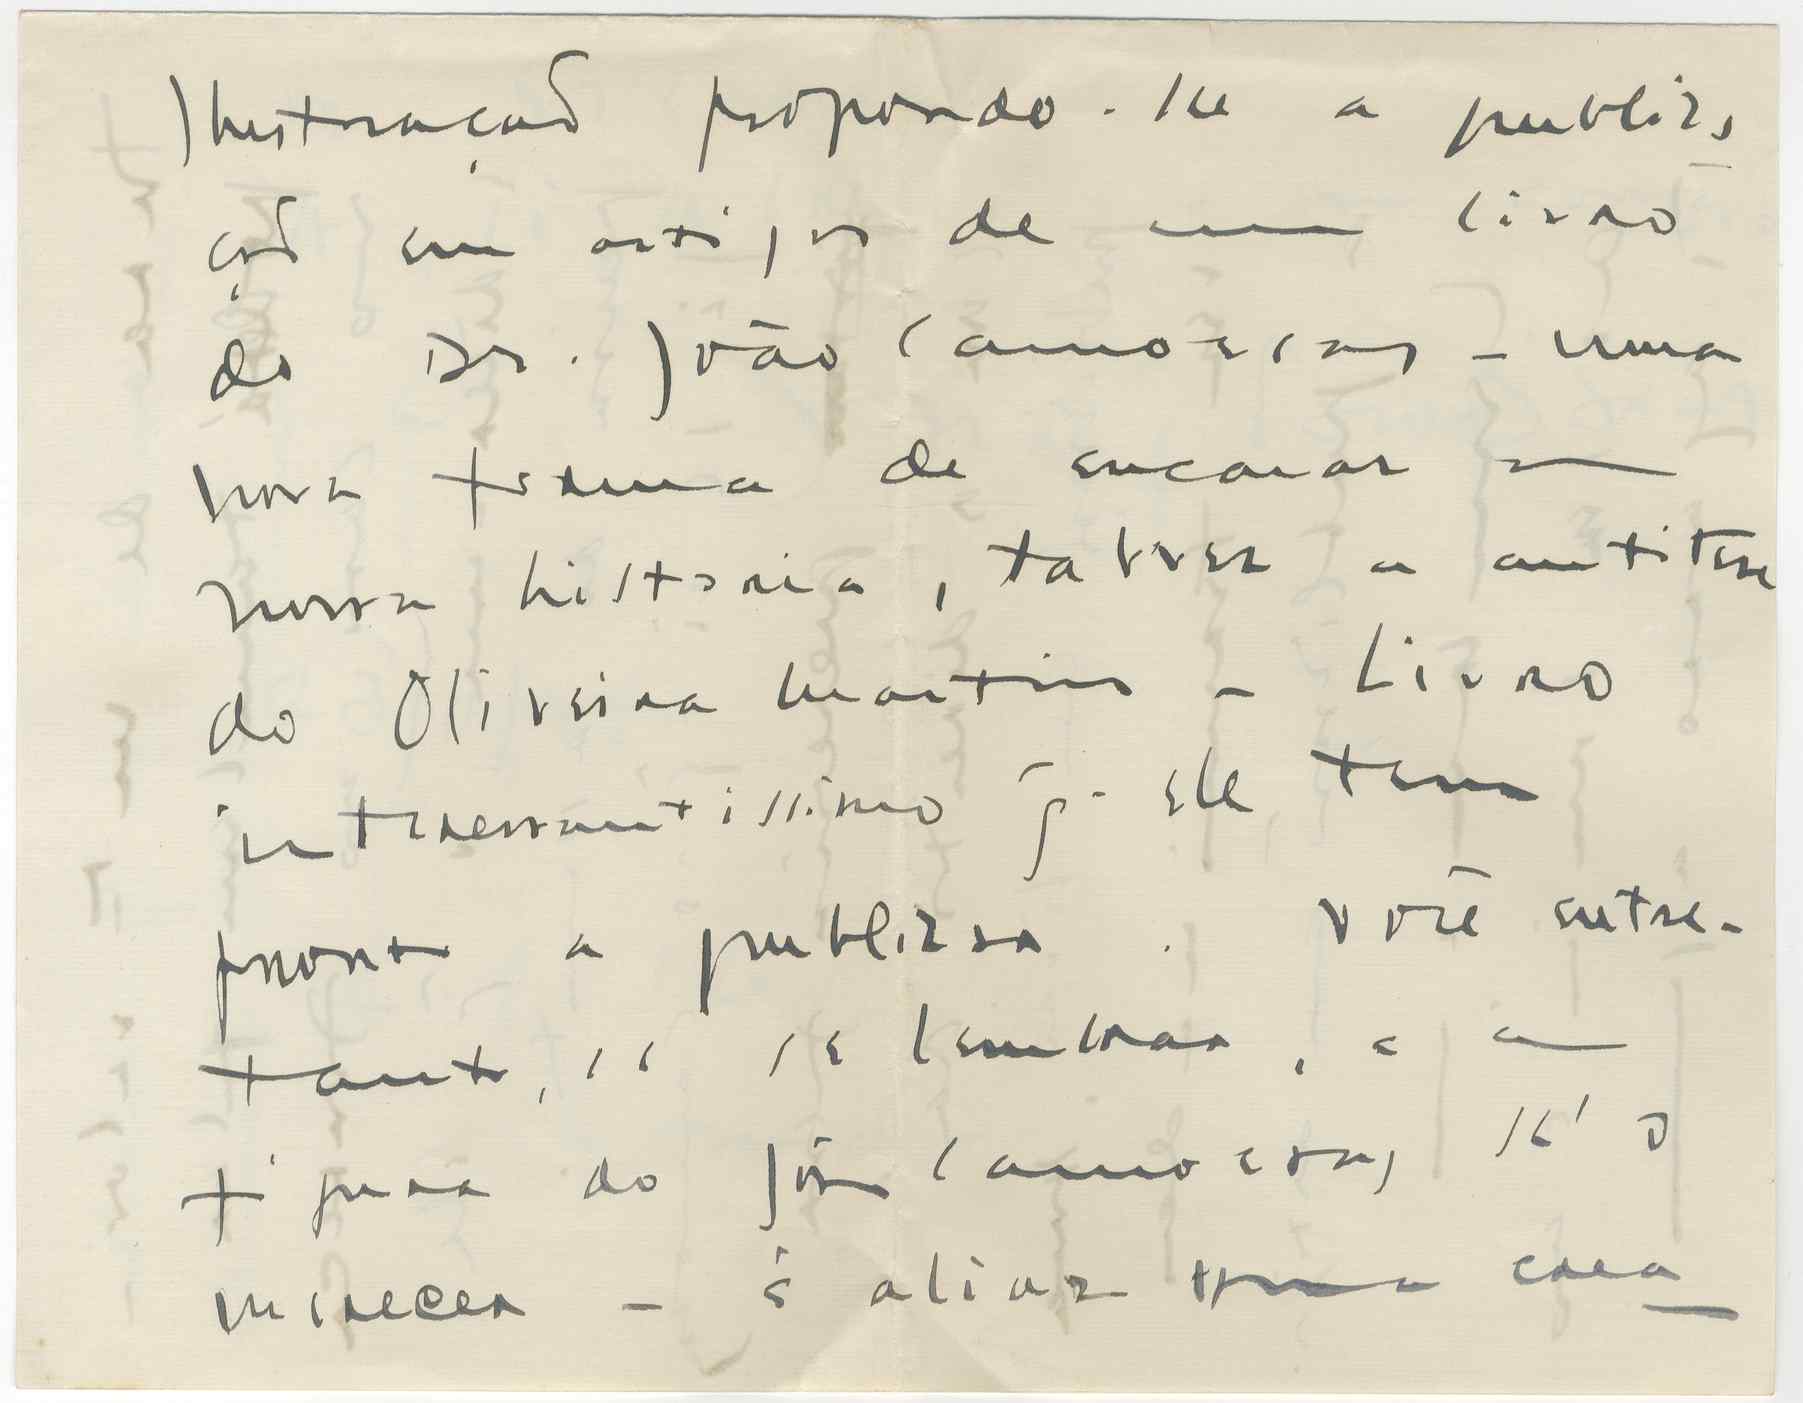 Ilustração propondo-lhe a publica
ção em artigos de um livro
do Dr. João Camoesas – uma
nova forma de encarar a
nossa historia, talvez a antitese
do Oliveira Martins – Livro
interessantissimo q. ele tem
pronto a publicar. Você entre-
tanto, se se lembrar, e a
figura do João Camoesas lh'o
merecer – é aliaz uma crea